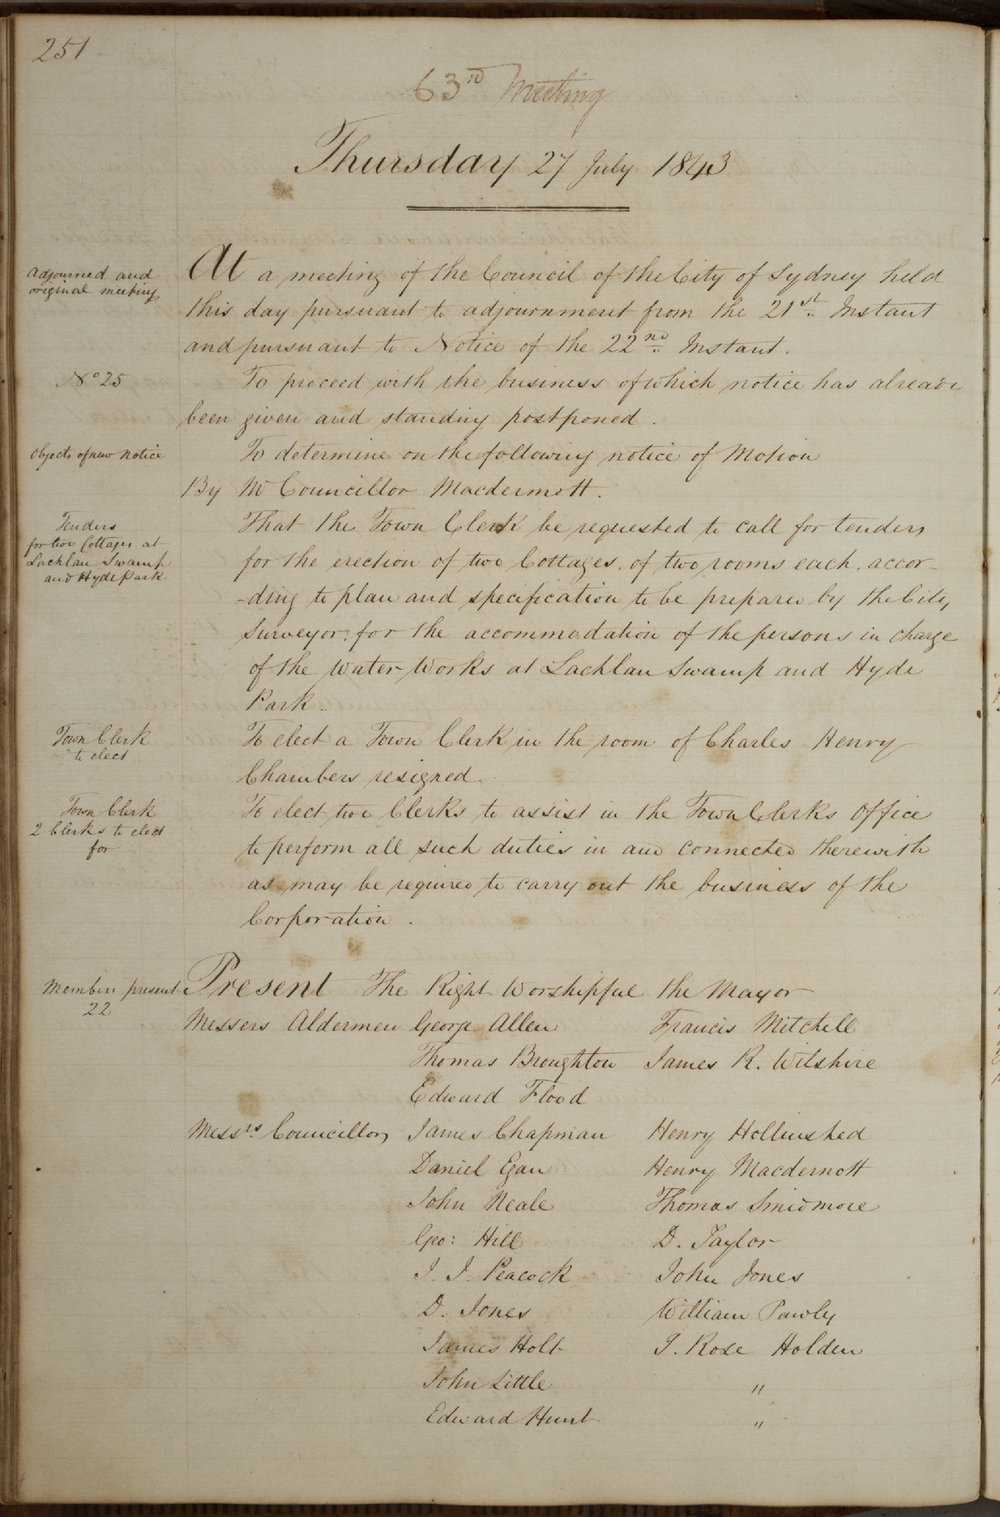 251
63rd Meeting
Thursday 27 July 1843
Adjourned and
original meeting
At a meeting of the Council of the City of Sydney held
this day pursuant to adjournment from the 21st. Instant
and pursuant to Notice of the 22nd. Instant.
No 25
To proceed with the business of which notice has already
been given and standing postponed.
Objects of new Notice
To determine on the following notice of Motion
By Mr Councillor Macdermott.
Tenders
for two Cottages at
Lachlan Swamp
and Hyde Park
That the Town Clerk be requested to call for tenders
for the erection of two Cottages, of two rooms each, accor-
-ding to plan and specification to be prepared by the City
Surveyor, for the accommodation of the persons in charge
of the Water Works at Lachlan Swamp and Hyde
Park.
Town Clerk
to elect
To elect a Town Clerk in the room of Charles Henry
Chambers resigned.
Town Clerk
2 Clerks to elect
for
To elect two Clerks to assist in the Town Clerks Office
to perform all such duties in and connected therewith
as may be required to carry out the business of the
Corporation.
Members present
22
Present The Right Worshipful the Mayor
Messers Aldermen George Allen Francis Mitchell
Thomas Broughton James R. Wilshire
Edward Flood
Messrs. Councillors James Chapman Henry Hollinshed
Daniel Egan Henry Macdermott
John Neale Thomas Smidmore
Geo: Hill D. Taylor
J. J. Peacock John Jones
D. Jones William Pawly
James Holt T. Rose Holden
John Little "
Edward Hunt "